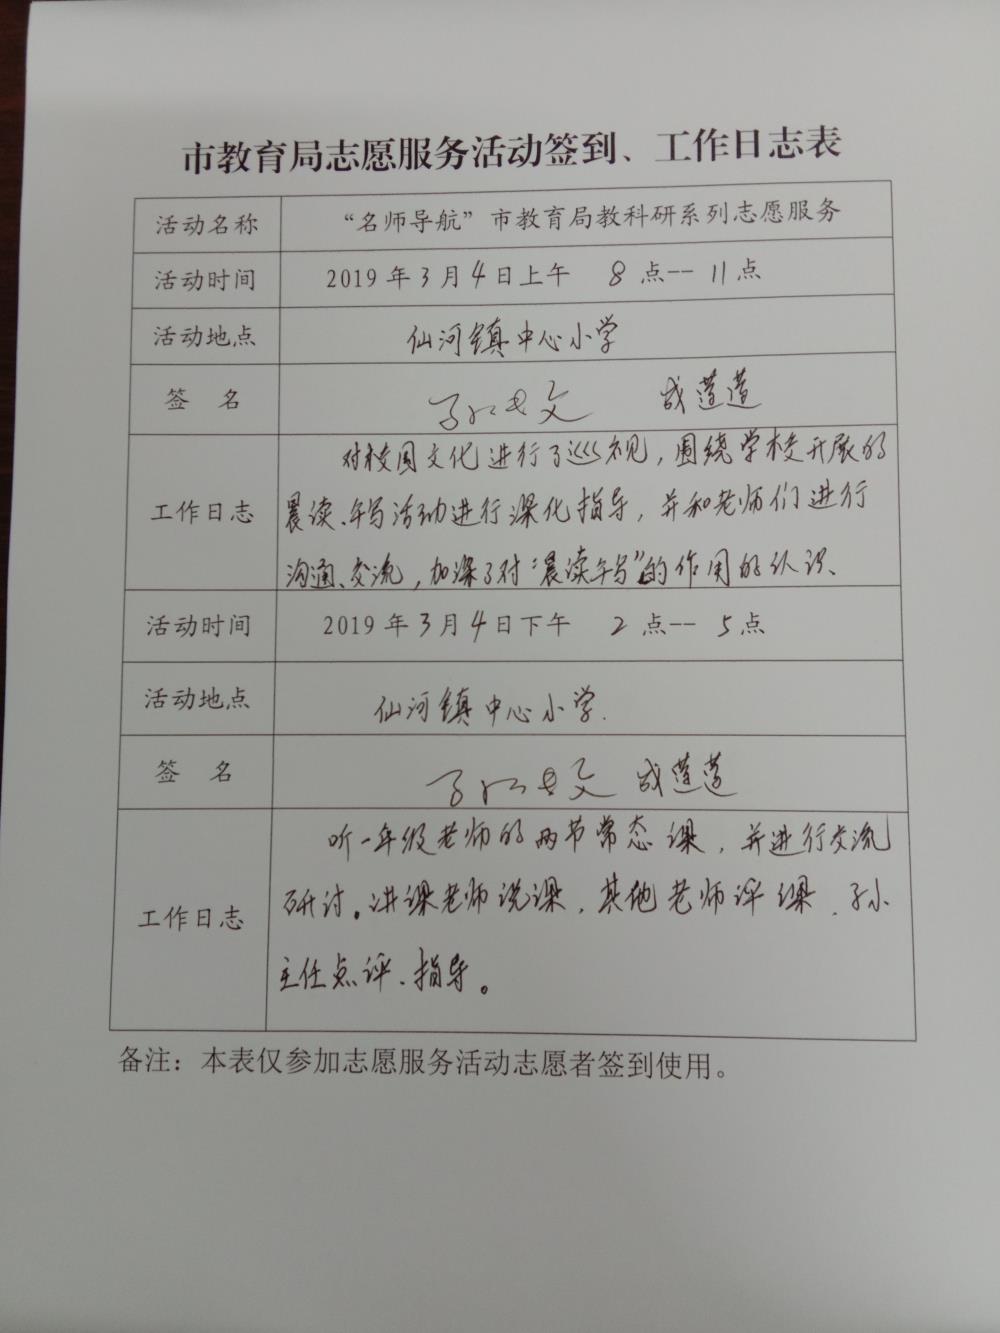 市教育局志愿服务活动签到、工作日志表
活动名称 “名师导航”市教育局教科研系列志愿服务
活动时间 2019年3月4日上午 8点--11点
活动地点 仙河镇中心小学
签 名 成莲莲
对校园文化进行了巡视，围绕学校开展的
工作日志 晨读、午写活动进行深化指导，并和老师们进行
沟通、交流，加深了对“晨读午写”的作用的认识、
活动时间 2019年3月4日下午 2点--5点
活动地点 仙河镇中心小学.
签 名 成莲莲
听一年级老师的两节常态课，并进行交流
工作日志 研讨。讲课老师说课，其他老师评课，孙
主任点评、指导。
备注：本表仅参加志愿服务活动志愿者签到使用。